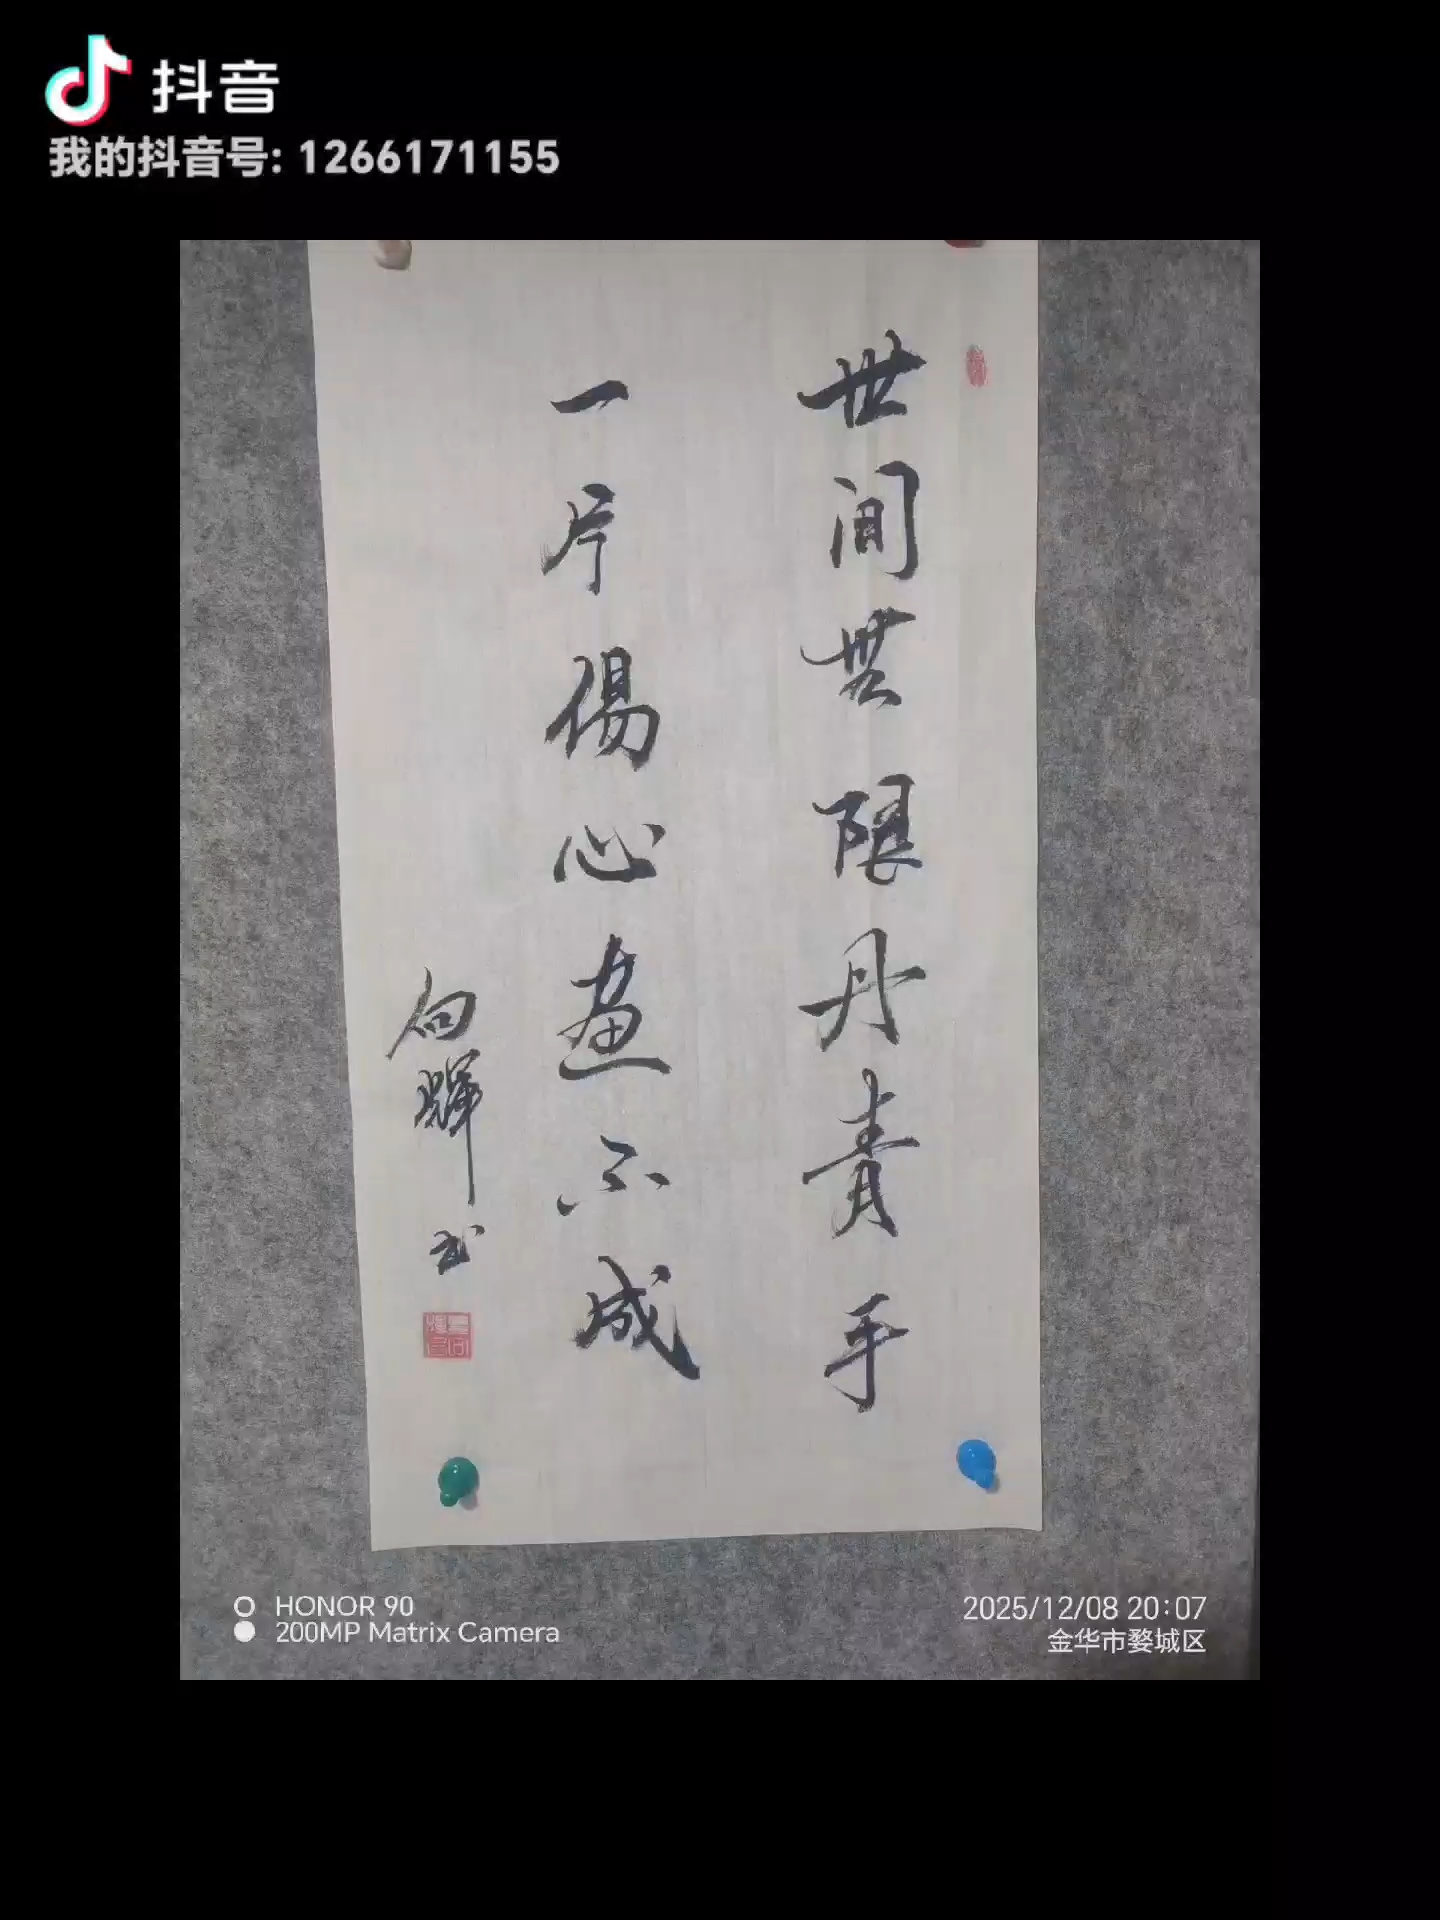 抖音
我的抖音号: 1266171155
世间無限丹青手
一片傷心畫不成
向輝书
HONOR 90
200MP Matrix Camera
2025/12/08 20:07
金华市婺城区